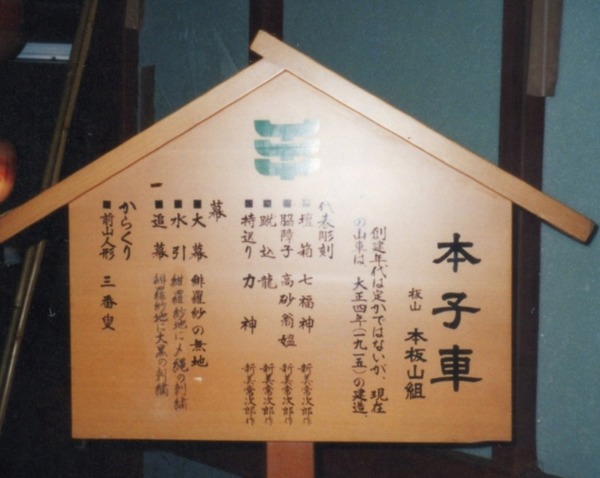 本子車
板山 本板山組
創建年代は定かではないが、現在
の山車は、大正四年(一九一五)の建造。
代表彫刻
■壇箱 七福神 新美常次郎作
■脇障子 高砂翁媼 新美常次郎作
■蹴込 龍 新美常次郎作
■持送り 力神 新美常次郎作
幕
■大幕 緋羅紗の無地
■水引 紺羅紗地に〆縄の刺繍
■追幕 緋羅紗地に大黒の刺繍
からくり
■前山人形 三番叟